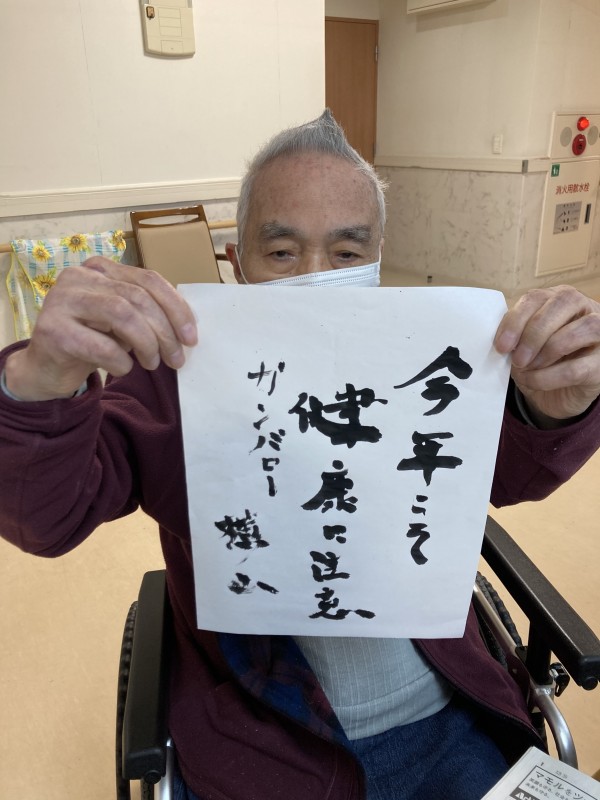 今年こそ
健康に注意
ガンバロー
消火用散水栓
マモルをツ